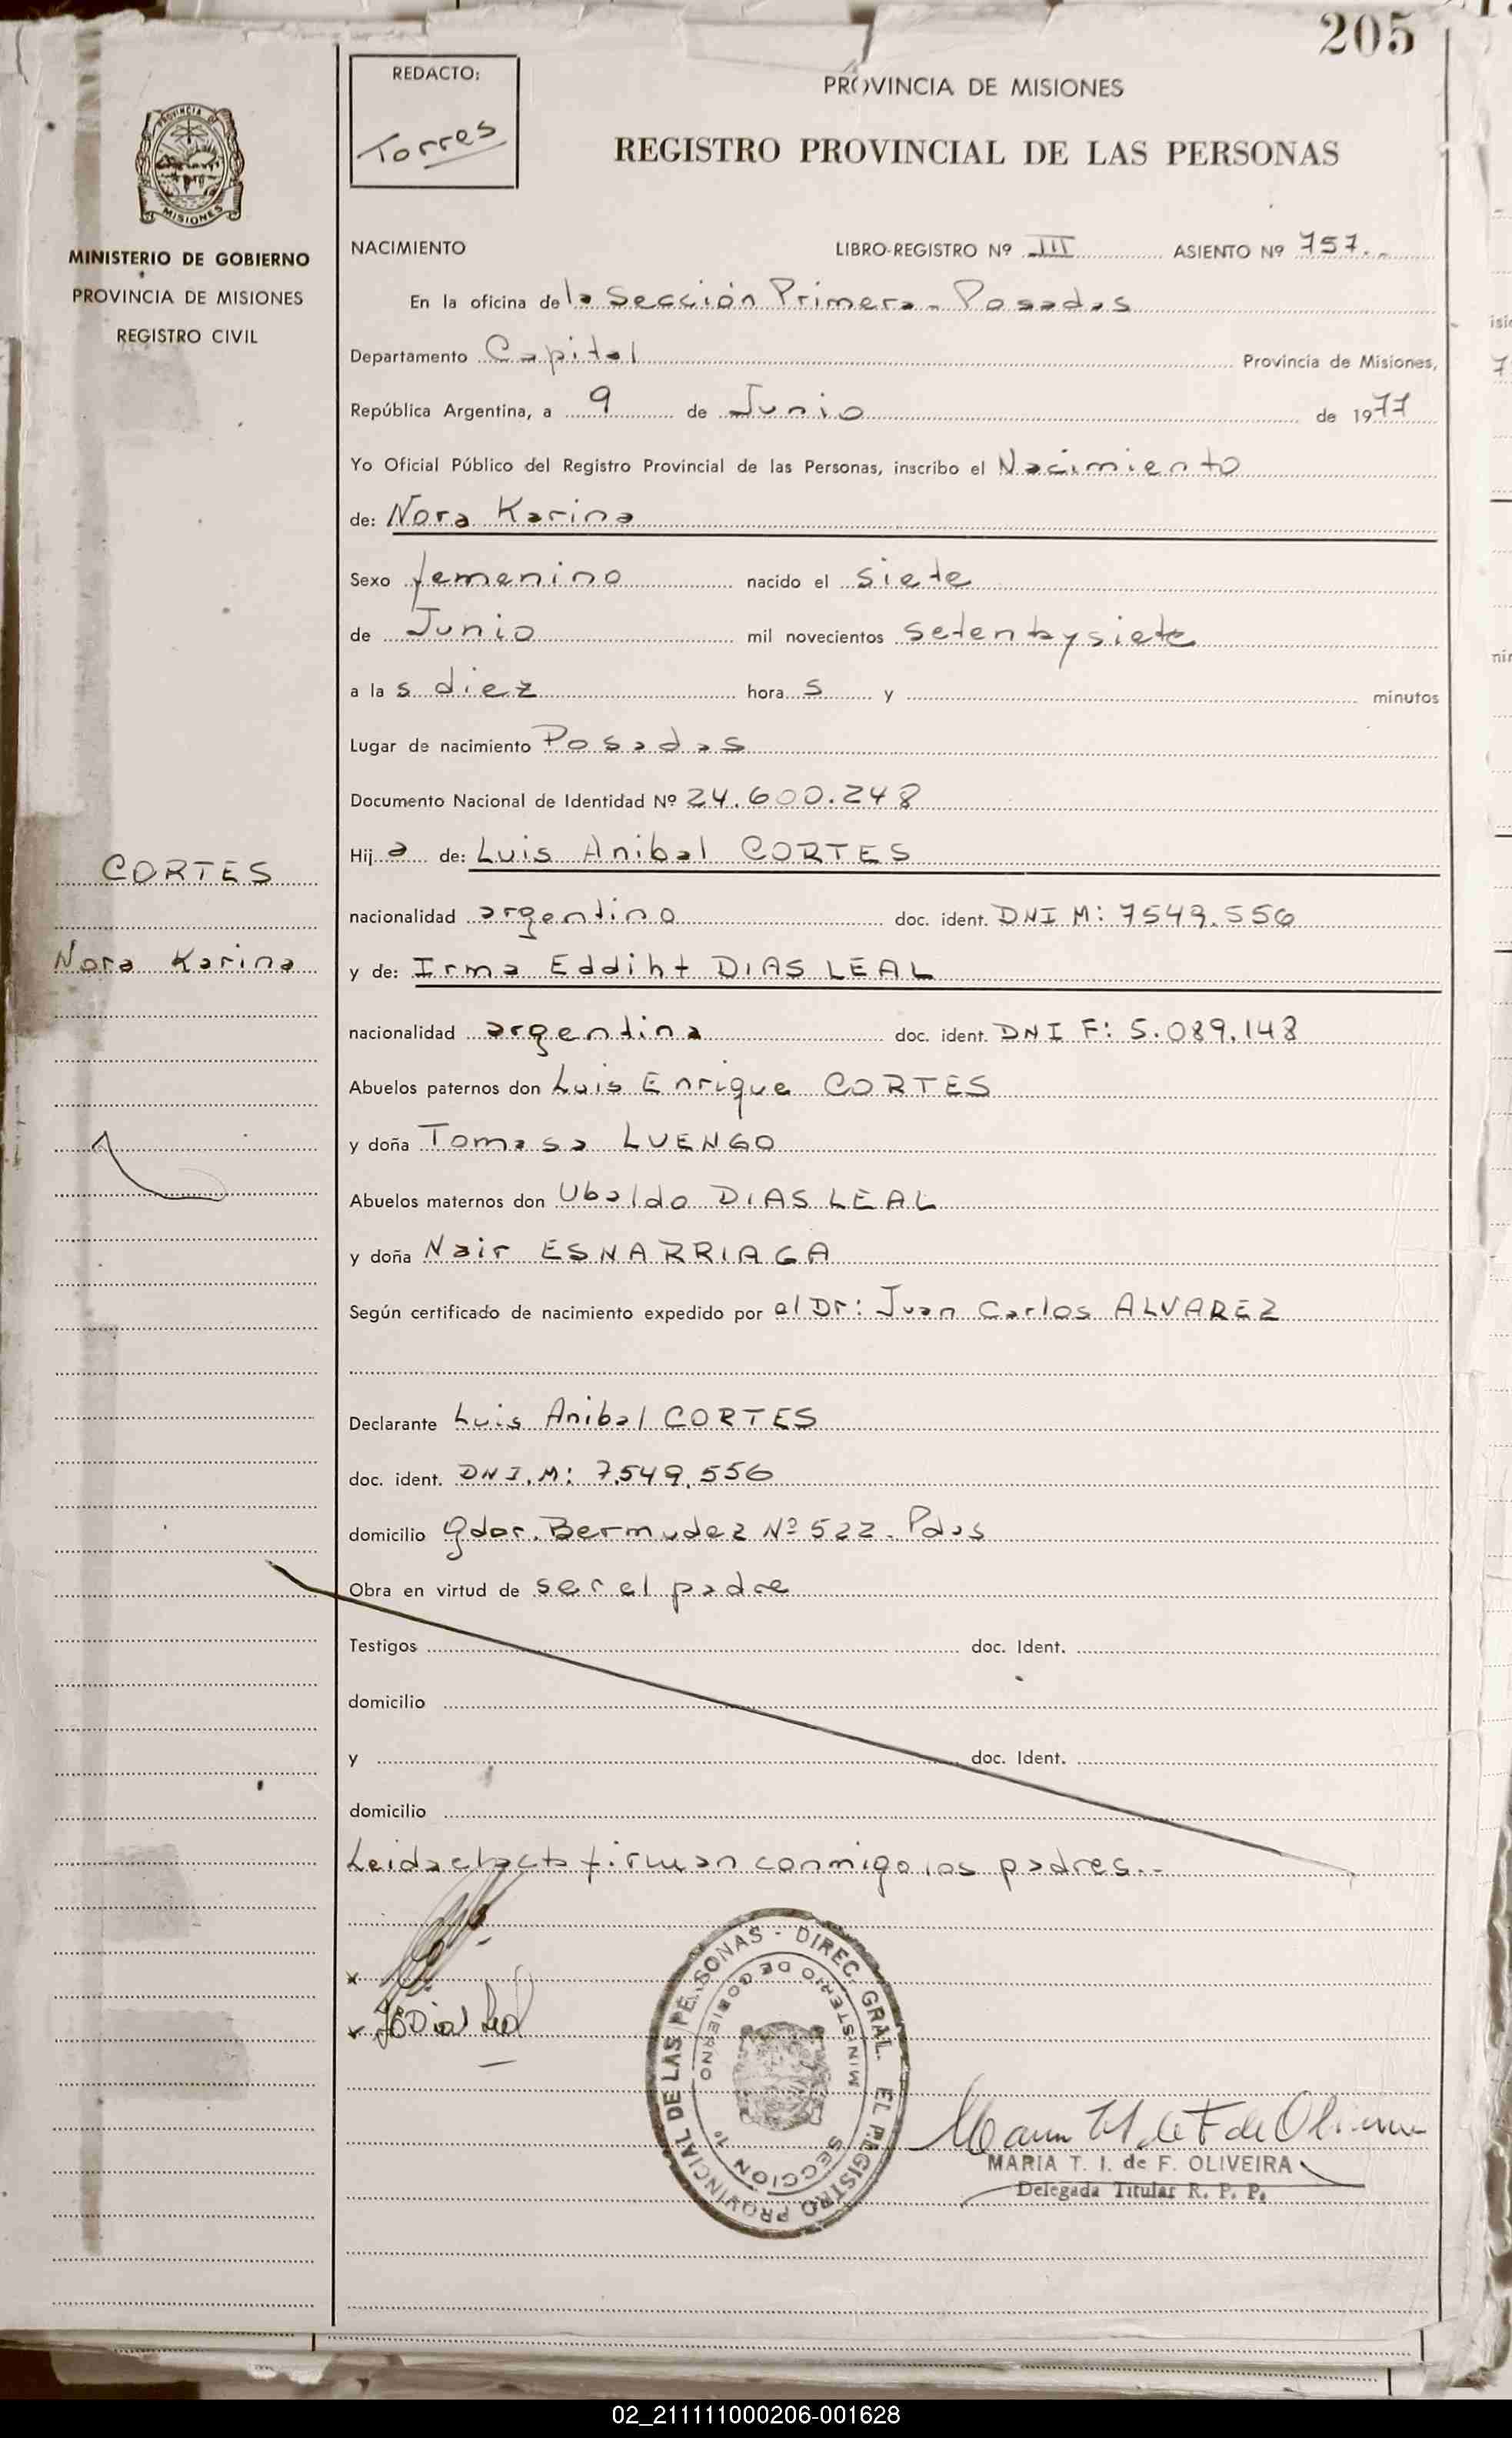 205
REDACTO:
Torres
PROVINCIA DE MISIONES
REGISTRO PROVINCIAL DE LAS PERSONAS
PROVINCIA DE
MISIONES
MINISTERIO DE GOBIERNO
PROVINCIA DE MISIONES
REGISTRO CIVIL
NACIMIENTO LIBRO-REGISTRO Nº III ASIENTO Nº 757.-
En la oficina de la Sección Primera - Posadas
Departamento Capital Provincia de Misiones,
República Argentina, a 9 de Junio de 1977
Yo Oficial Público del Registro Provincial de las Personas, inscribo el Nacimiento
de: Nora Karina
Sexo femenino nacido el siete
de Junio mil novecientos setentaysiete
a la s diez hora s y minutos
Lugar de nacimiento Posadas
Documento Nacional de Identidad Nº 24.600.248
Hij a de: Luis Anibal CORTES
CORTES
nacionalidad argentino doc. ident. DNI M: 7549.556
Nora Karina
y de: Irma Eddiht DIAS LEAL
nacionalidad argentina doc. ident. DNI F: 5.089.148
Abuelos paternos don Luis Enrique CORTES
y doña Tomasa LUENGO
Abuelos maternos don Ubaldo DIAS LEAL
y doña Nair ESNARRIAGA
Según certificado de nacimiento expedido por el Dr: Juan Carlos ALVAREZ
Declarante Luis Anibal CORTES
doc. ident. DNI.M: 7.549.556
domicilio Gdor. Bermudez Nº 522 - Pdas
Obra en virtud de ser el padre
Testigos doc. Ident.
domicilio
y doc. Ident.
domicilio
Leida el acta firman conmigo los padres.-
DIREC. GRAL. EL REGISTRO PROVINCIAL DE LAS PERSONAS -
MINISTERIO DE GOBIERNO
SECCION 1º
MARIA T. I. de F. OLIVEIRA
Delegada Titular R. P. P.
02_211111000206-001628